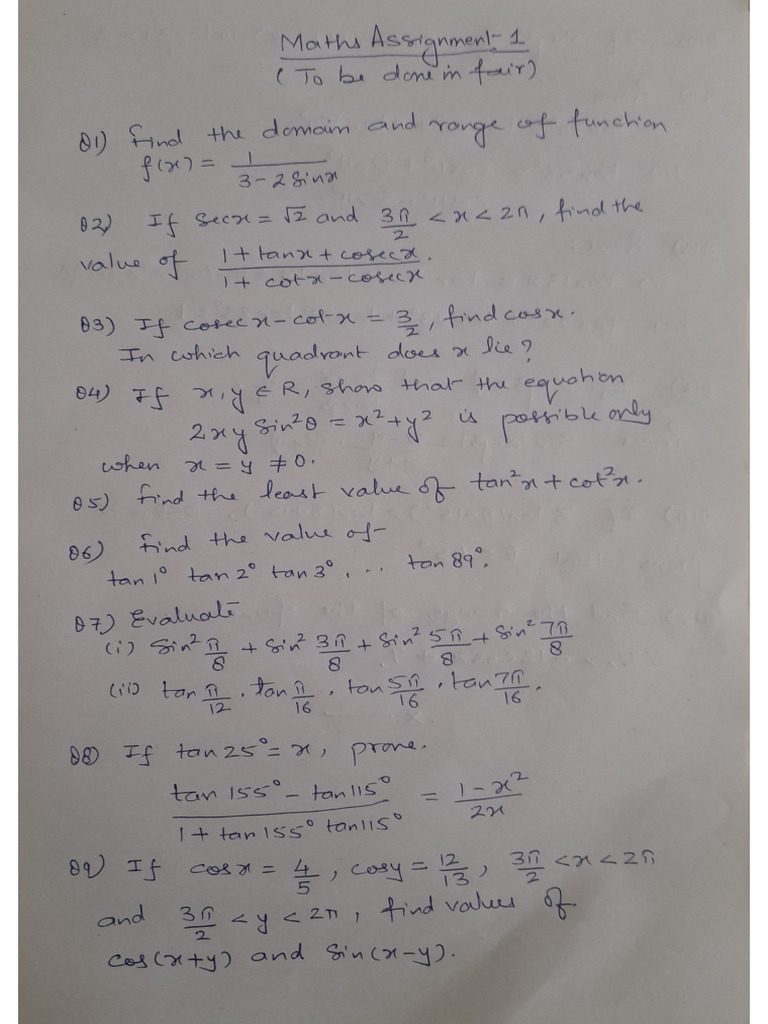 Maths Assignment-1
(To be done in fair)
Q1) Find the domain and range of function
f(x) = 1/(3-2sinx)
Q2) If secx = √2 and 3π/2 < x < 2π, find the
value of (1+tanx+cosecx)/(1+cotx-cosecx).
Q3) If cosecx-cotx = 3/2, find cosx.
In which quadrant does x lie?
Q4) If x,y ∈ R, show that the equation
2xy sin²θ = x²+y² is possible only
when x = y ≠ 0.
Q5) Find the least value of tan²x + cot²x.
Q6) Find the value of-
tan1° tan2° tan3°, ... tan89°.
Q7) Evaluate
(i) sin² π/8 + sin² 3π/8 + sin² 5π/8 + sin² 7π/8
(ii) tan π/12 . tan π/16 . tan 5π/16 . tan 7π/16.
Q8) If tan25° = x, prove.
(tan155° - tan115°)/(1+tan155° tan115°) = (1-x²)/2x
Q9) If cosx = 4/5, cosy = 12/13, 3π/2 < x < 2π
and 3π/2 < y < 2π, find values of
cos(x+y) and sin(x-y).